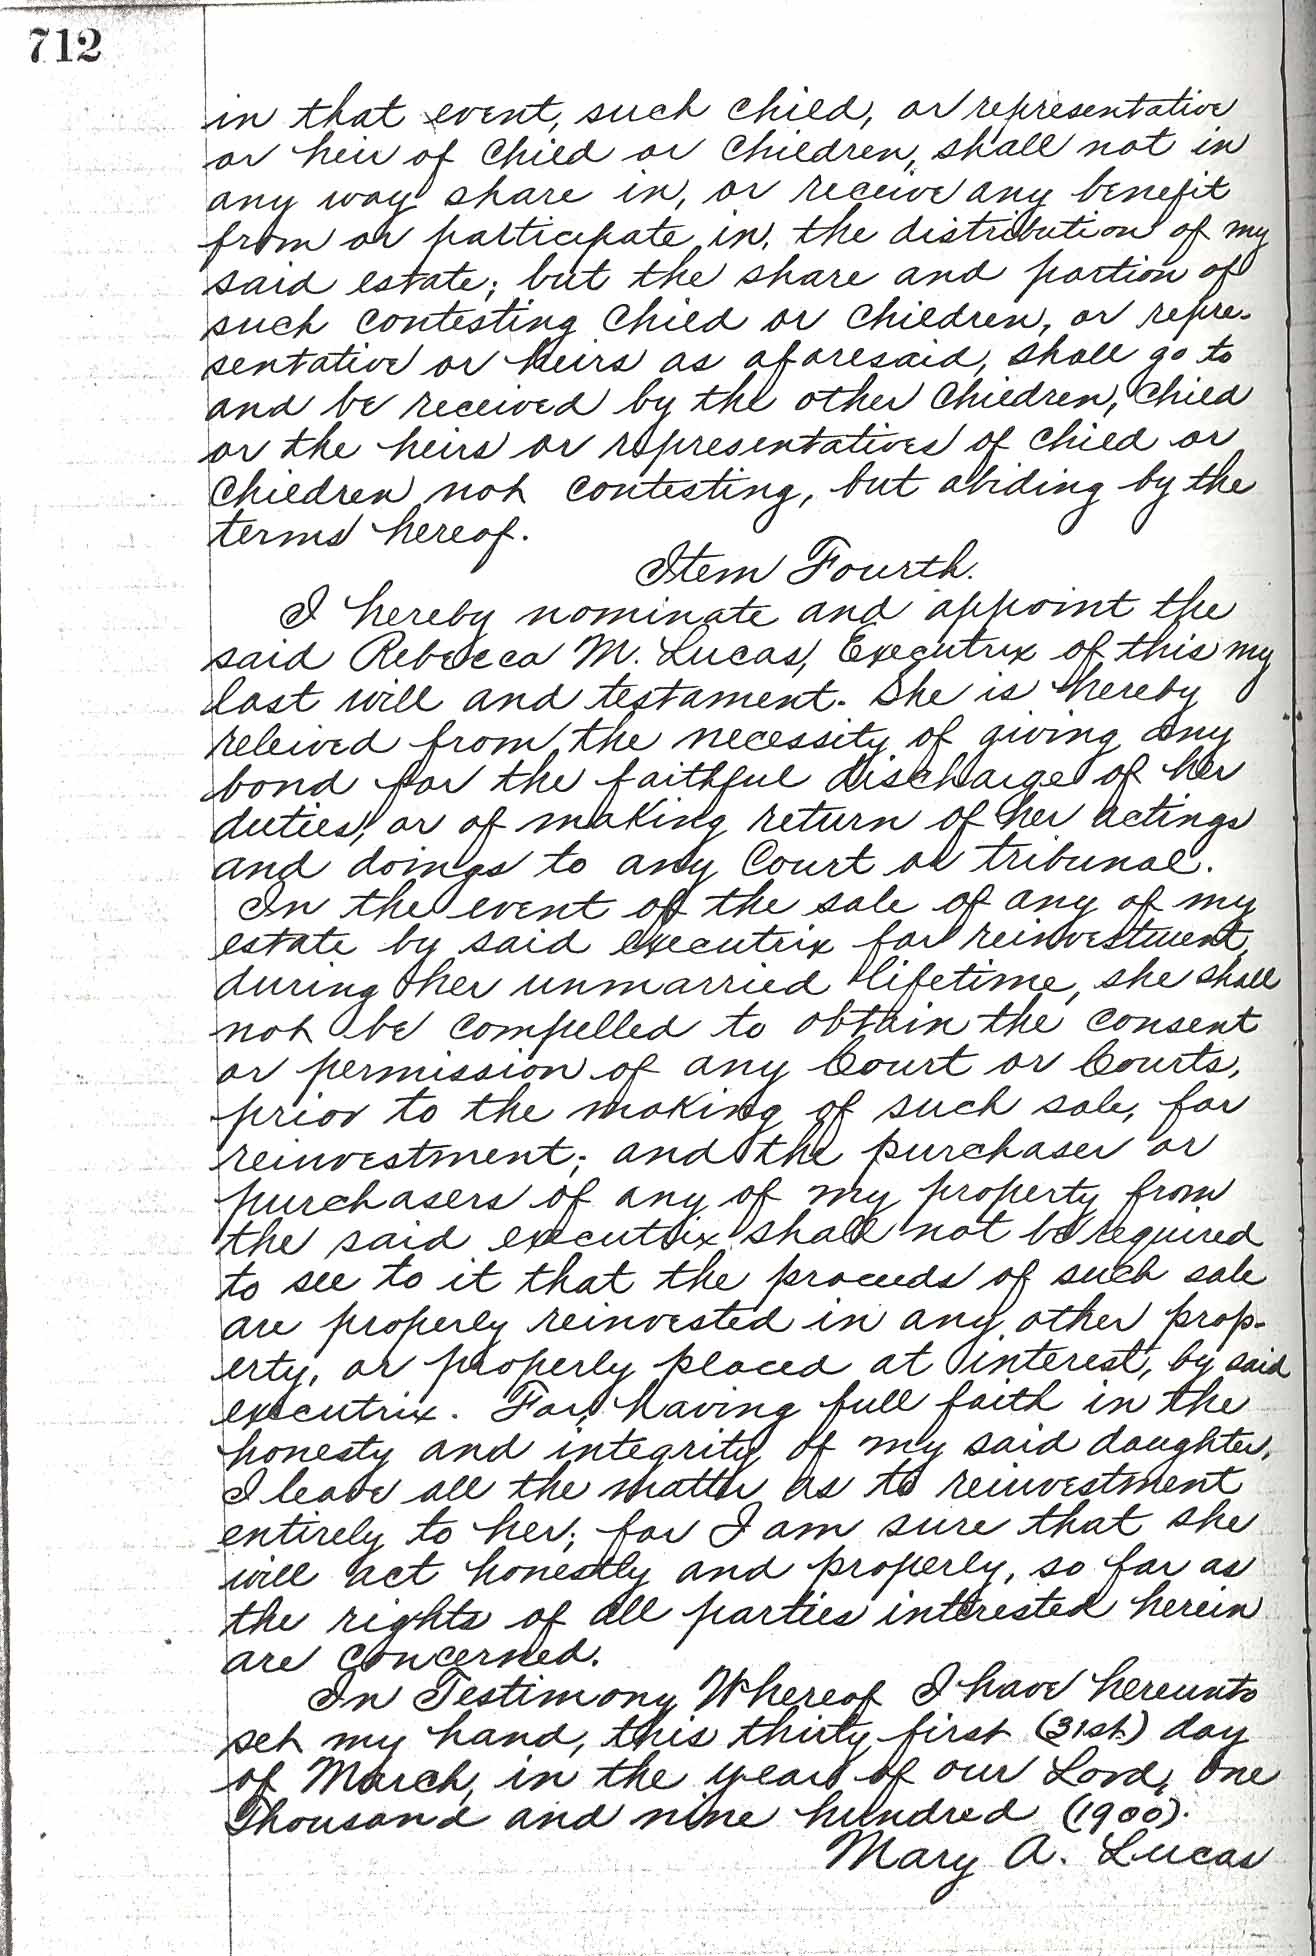 712
in that event, such child, or representative
or heir of child or children, shall not in
any way share in, or receive any benefit
from or participate in, the distribution of my
said estate; but the share and portion of
such contesting child or children, or repre-
sentative or heirs as aforesaid, shall go to
and be received by the other children, child
or the heirs or representatives of child or
children not contesting, but abiding by the
terms hereof.
Item Fourth.
I hereby nominate and appoint the
said Rebecca M. Lucas, Executrix of this my
last will and testament. She is hereby
releived from the necessity of giving any
bond for the faithful discharge of her
duties, or of making return of her actings
and doings to any Court or tribunal.
In the event of the sale of any of my
estate by said executrix for reinvestment,
during her unmarried lifetime, she shall
not be compelled to obtain the consent
or permission of any Court or Courts,
prior to the making of such sale, for
reinvestment; and the purchaser or
purchasers of any of my property from
the said executrix shall not be required
to see to it that the proceeds of such sale
are properly reinvested in any other prop-
erty, or properly placed at interest, by said
executrix. For, having full faith in the
honesty and integrity of my said daughter,
I leave all the matter as to reinvestment
entirely to her; for I am sure that she
will act honestly and properly, so far as
the rights of all parties interested herein
are concerned.
In Testimony Whereof I have hereunto
set my hand, this thirty first (31st.) day
of March, in the year of our Lord, One
Thousand and nine hundred (1900).
Mary A. Lucas